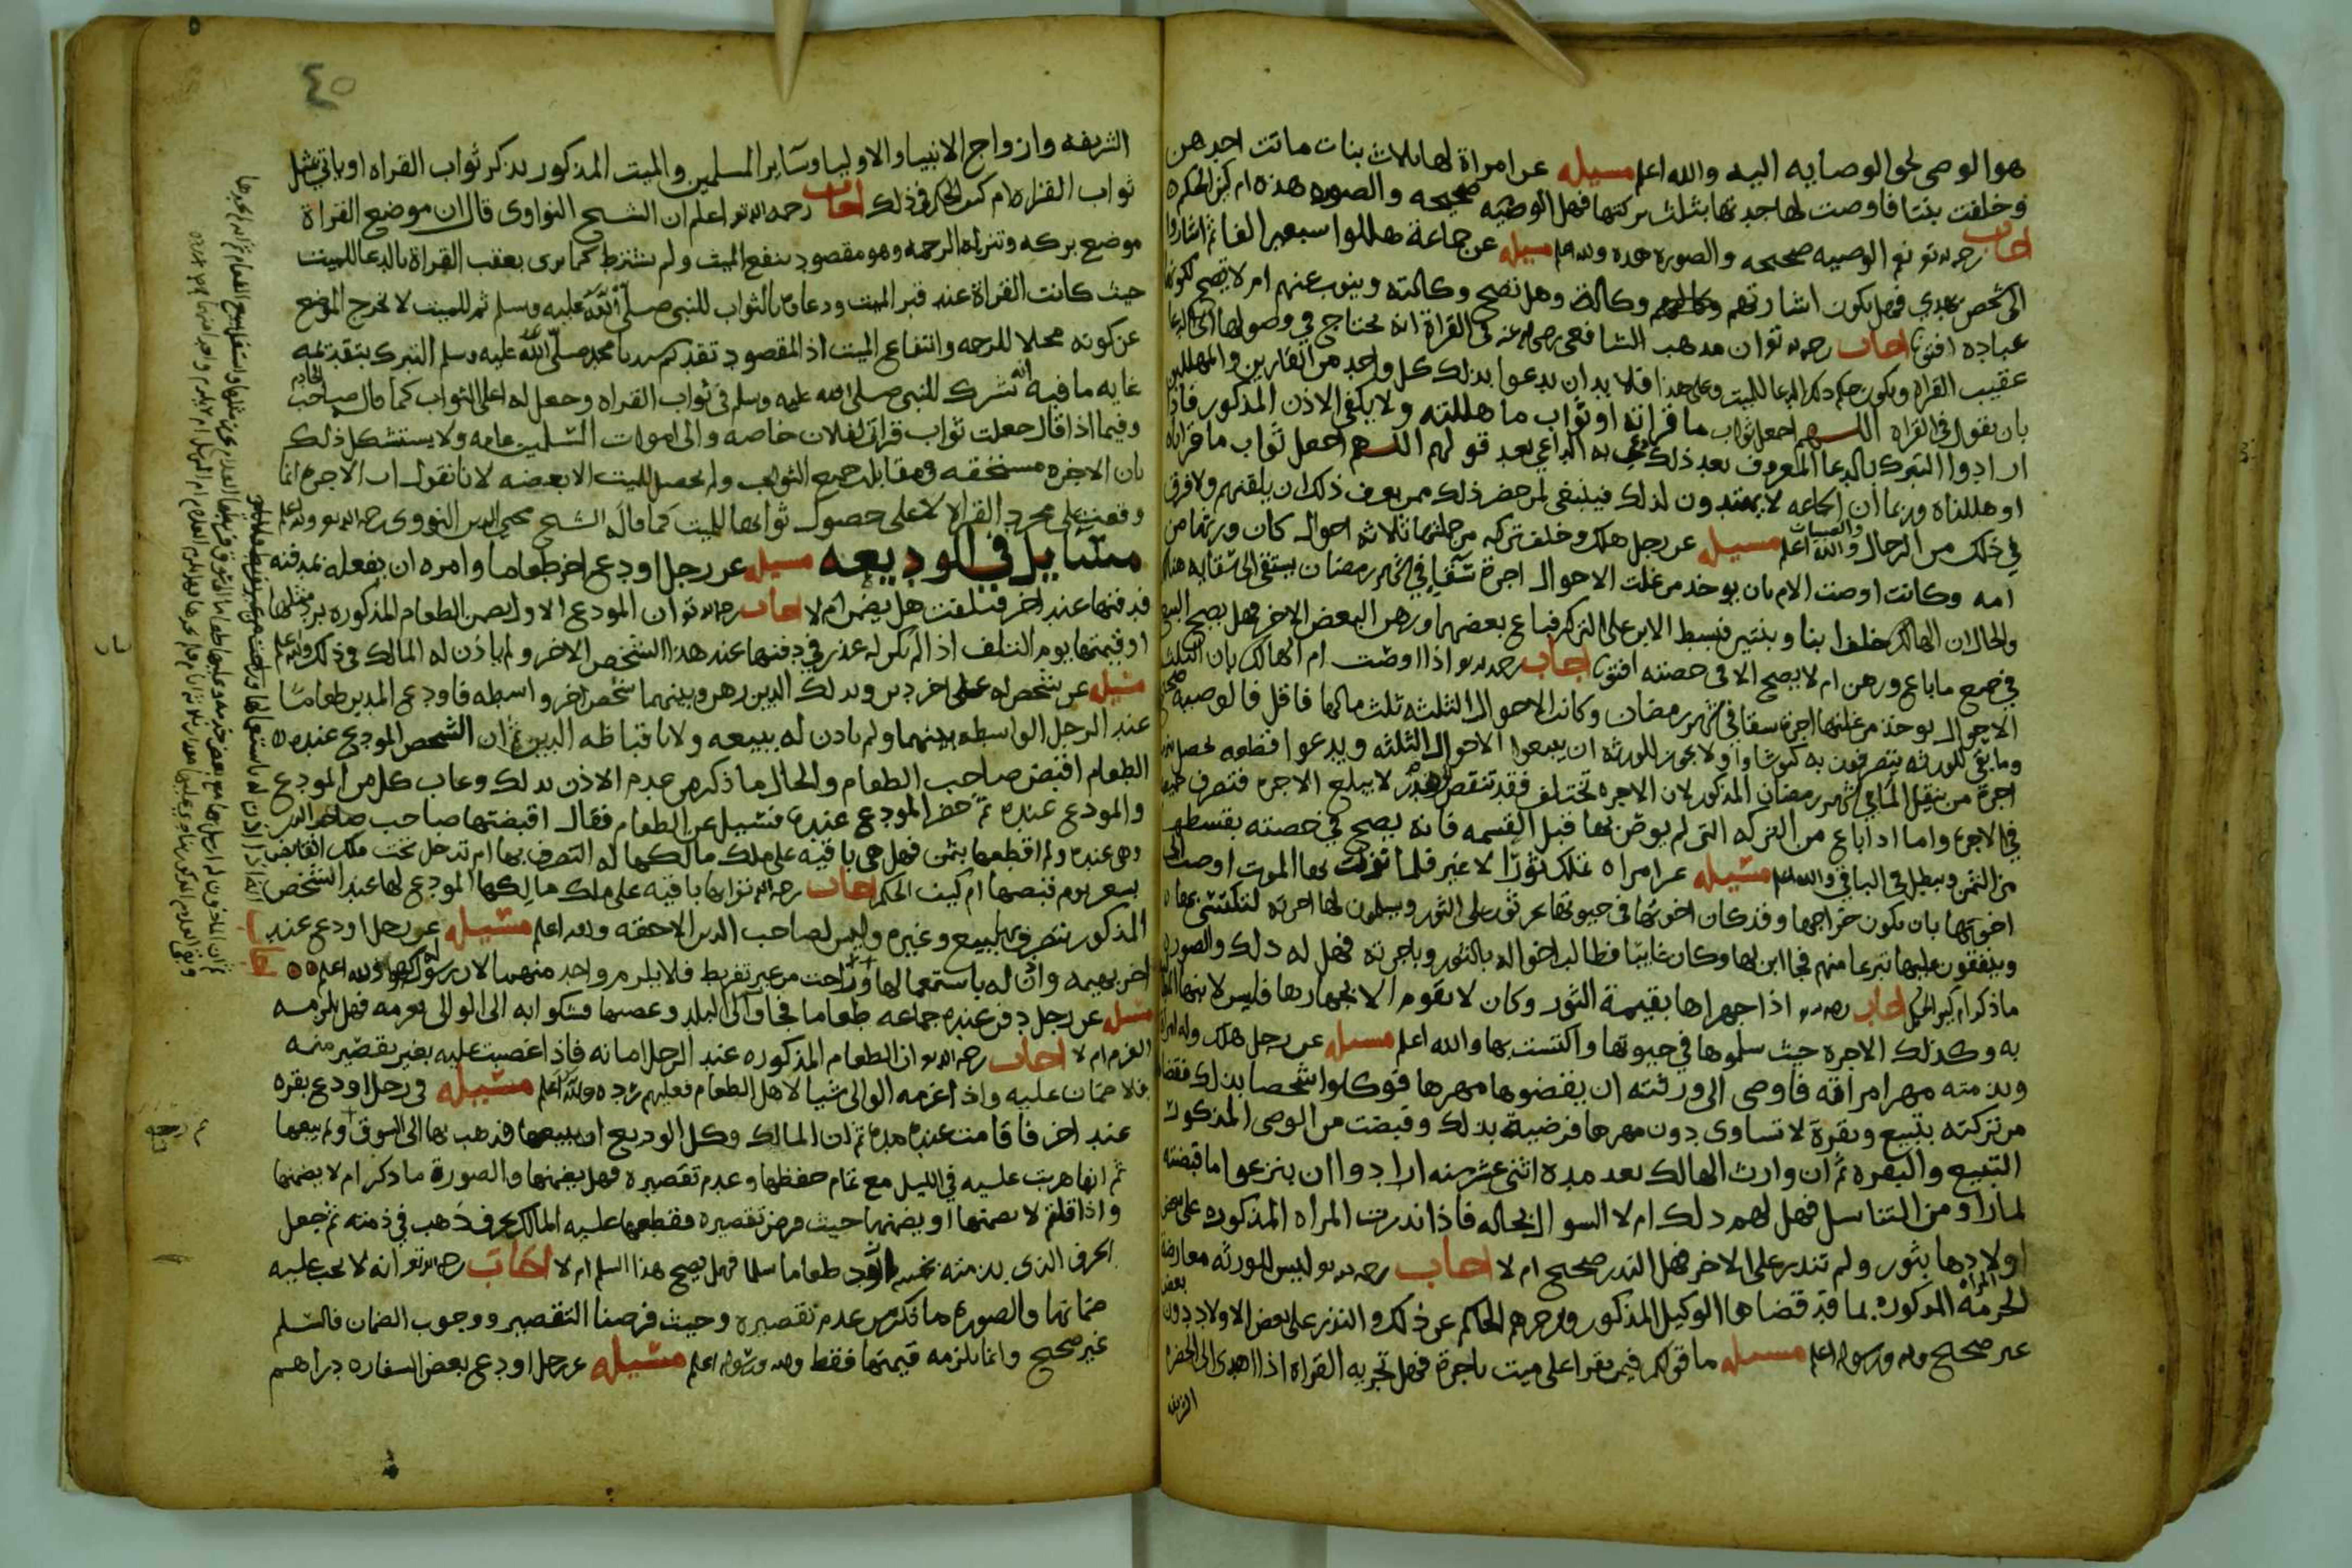 هو الوصى لحق الوصايه اليه والله اعلم مسيله عن امراة لها ثلاث بنات ماتت احدهن
وخلفت بنتا فاوصت لها جدتها بثلث تركتها فهل الوصيه صحيحه والصوره هذه ام كيف الحكم
اجاب رحمه الله تع نعم الوصيه صحيحه والصوره هذه والله اعلم مسيله عن جماعة هللوا سبعين الفا ثم اشاروا
الى شخص يهدي فهل يكون اشارتهم وكالة وهل تصح وكالته وينوب عنهم ام لا تصح لكونها
عباده افتونا اجاب رحمه الله تع ان مذهب الشافعى رضى الله عنه فى القراة انه يحتاج في وصولها الى الدعا
عقيب القراه ويكون حكم ذلك الدعا للميت وعلى هذا فلا بد ان يدعوا بذلك كل واحد من القارين والمهللين
بان يقول فى القراه اللهم اجعل ثواب ما قراته او ثواب ما هللته ولا يكفى الاذن المذكور فاذا
ارادوا التبرك بالدعا المعروف بعد ذلك به الداعي بعد قولهم اللهم اجعل ثواب ما قراناه
او هللناه وربما ان الجماعه لا يهتدون لذلك فينبغى لمن حضر ذلك ممن يعرف ذلك ان يلقنهم ولا فرق
في ذلك من الرجال والصبيان والله اعلم مسيله عن رجل هلك وخلف تركه من جملتها ثلاثه احوال كان ورثها من
امه وكانت اوصت الام بان يوخذ من غلت الاحوال اجرة سقا في شهر رمضان يستقى الى سقايه هناك
والحال ان الهالك خلف ابنا وبنتين فبسط الابن على التركه فباع بعضها ورهن البعض الاخر فهل يصح البيع
في جميع ما باع ورهن ام لا يصح الا فى حصته افتونا اجاب رحمه الله تع اذا اوصت ام الهالك بان الثلث
الاحوال يوخذ من غلتها اجرة سقا في شهر رمضان وكانت الاحوال الثلثه ثلث مالها فاقل فالوصيه صحيحه
وما بقى للورثه يتصرفون به كيف شاوا ولا يجوز للورثه ان يبيعوا الاحوال الثلثه ويدعوا قطعه يحصل منها
اجرة من ينقل الما في شهر رمضان المذكور لان الاجره تختلف فقد تنقص لا يبلغ الاجره فتصرف جميعها
في الاجره واما اذا باع من التركه التى لم يوص بها قبل القسمه فانه يصح في حصته بقسطها
من الثمن ويبطل فى الباقي والله اعلم مسيله عن امراه تملك ثورا لا غير فلما نزلت بها الموت اوصت الى
اخوتها بان يكون خراجها وقد كان اخوتها فى حيوتها على الثور ويسلمون لها اجرته لتكتسى بها
وينفقون عليها تبرعا منهم فجا ابن لها وكان غايبا فطالب اخواله بالثور وباجرته فهل له ذلك والصوره
ما ذكر ام كيف الحكم اجاب رحمه الله تع اذا جهزاها بقيمة الثور وكان لا يقوم الا بجهازها فليس لابنها المطالبه
به وكذلك الاجره حيث سلموها في حيوتها واكتست بها والله اعلم مسيله عن رجل هلك وله امراة
وبذمته مهر امراته فاوصى الى ورثته ان يقضوها مهرها فوكلوا شخصا بذلك فقضاها
من تركته بتبيع وبقرة لا تساوى دون مهرها فرضيت بذلك وقبضت من الوصى المذكور
التبيع والبقره ثم ان وارث الهالك بعد مدة اثنى عشر سنه ارادوا ان ينزعوا ما قبضته
لما راو من التناسل فهل لهم ذلك ام لا السوال بحاله فاذا نذرت المراه المذكوره على بعض
اولادها بثور ولم تنذر على الاخر فهل النذر صحيح ام لا اجاب رحمه الله تع ليس للورثه معارضة
الحرمه المراه المذكوره بما قد قضاها الوكيل المذكور ويزجرهم الحاكم عن ذلك والنذر على بعض الاولاد دون بعض
غير صحيح والله ورسوله اعلم مسيله ما قولكم فيمن يقرا على ميت باجرة فهل تجزيه القراة اذا اهدى الى الحضره
الشريفه
٤٥
الشريفه وازواج الانبيا والاوليا وساير المسلمين والميت المذكور يذكر ثواب القراه او ياتي بمثل
ثواب القراه ام كيف الحكم فى ذلك اجاب رحمه الله تع اعلم ان الشيخ النواوى قال ان موضع القراة
موضع بركه وتنزل الرحمه وهو مقصود ينفع الميت ولم يشترط كما ترى بعقب القراة بالدعا للميت
حيث كانت القراة عند قبر الميت ودعا بالثواب للنبى صلى الله عليه وسلم ثم للميت لا تخرج الموضع
عن كونه محلا للرحمه وانتفاع الميت اذ المقصود تقديم سيدنا محمد صلى الله عليه وسلم التبرك بتقديمه
غايه ما فيه انه شرك للنبى صلى الله عليه وسلم فى ثواب القراه وجعل له اعلى الثواب كما قال صاحب الخادم
وفيما اذا قال جعلت ثواب قراتى لفلان خاصه والى اموات المسلمين عامه ولا يستشكل ذلك
بان الاجره مستحقه فى مقابله جميع الثواب ولم يحصل للميت الا بعضه لانا نقول ان الاجره انما
وقعت على مجرد القراه لا على حصول ثوابها للميت كما قال الشيخ محيى الدين النووى رحمه الله تع والله اعلم
مسايل في الوديعه مسيله عن رجل اودع اخر طعاما وامره ان يفعله بمدفنه
فدفنها عند اخر فتلفت هل يضمن ام لا اجاب رحمه الله تع ان المودع الاول يضمن الطعام المذكوره برد مثلها
او قيمتها يوم التلف اذا لم يكن له عذر في دفنها عند هذا الشخص الاخر ولم ياذن له المالك فى ذلك والله اعلم
مسيله عن شخص له على اخر دين وبذلك الدين رهن وبينهما شخص اخر واسطه فاودع المدين طعاما
عند الرجل الواسطه بينهما ولم ياذن له ببيعه ولا باقباضه الدين ثم ان الشخص المودع عنده
الطعام اقبض صاحب الطعام والحال ما ذكر من عدم الاذن بذلك وغاب كل من المودع
والمودع عنده ثم حضر المودع عنده فسيل عن الطعام فقال اقبضتها صاحب الدين
وهى عنده ولم اقطعها بثمن فهل هى باقيه على ملك مالكها له التصرف بها ام تدخل تحت ملك القابض
بسعر يوم قبضها ام كيف الحكم اجاب رحمه الله تع انها باقيه على ملك مالكها المودع لها عند الشخص
المذكور يتصرف بها ببيع وغيره وليس لصاحب الدين الا حقه والله اعلم مسيله عن رجل اودع عند
اخر بهيمه واذن له باستعمالها وراحت من غير تفريط فلا يلزم واحد منهما والله اعلم
مسيله عن رجل دفن عنده جماعه طعاما فجا والى البلد وغصبها فشكوا به الى الوالى يغرمه فهل يلزمه
الغرم ام لا اجاب رحمه الله تع ان الطعام المذكوره عند الرجل امانه فاذا غصبت عليه بغير تقصير منه
فلا ضمان عليه واذا غرمه الوالى شيا لاهل الطعام فعليهم رده والله اعلم مسيله فى رجل اودع بقره
عند اخر فاقامت عنده مده ثم ان المالك وكل الوديع ان يبيعها فذهب بها الى السوق ولم يبيعها
ثم انها هربت عليه في الليل مع تمام حفظها وعدم تقصيره فهل يضمنها والصورة ما ذكر ام لا يضمنها
واذا قلتم لا يضمنها او يضمنها حيث فرض تقصيره فقطعها عليه المالك بحرف ذهب في ذمته ثم جعل
الحرف الذى بذمته طعاما سلما فهل يصح هذا السلم ام لا اجاب رحمه الله تع انه لا يجب عليه
ضمانها والصوره ما ذكر من عدم تقصيره وحيث فرضنا التقصير ووجوب الضمان فالسلم
غير صحيح وانما يلزمه قيمتها فقط والله ورسوله اعلم مسيله عن رجل اودع بعض السفاره دراهم